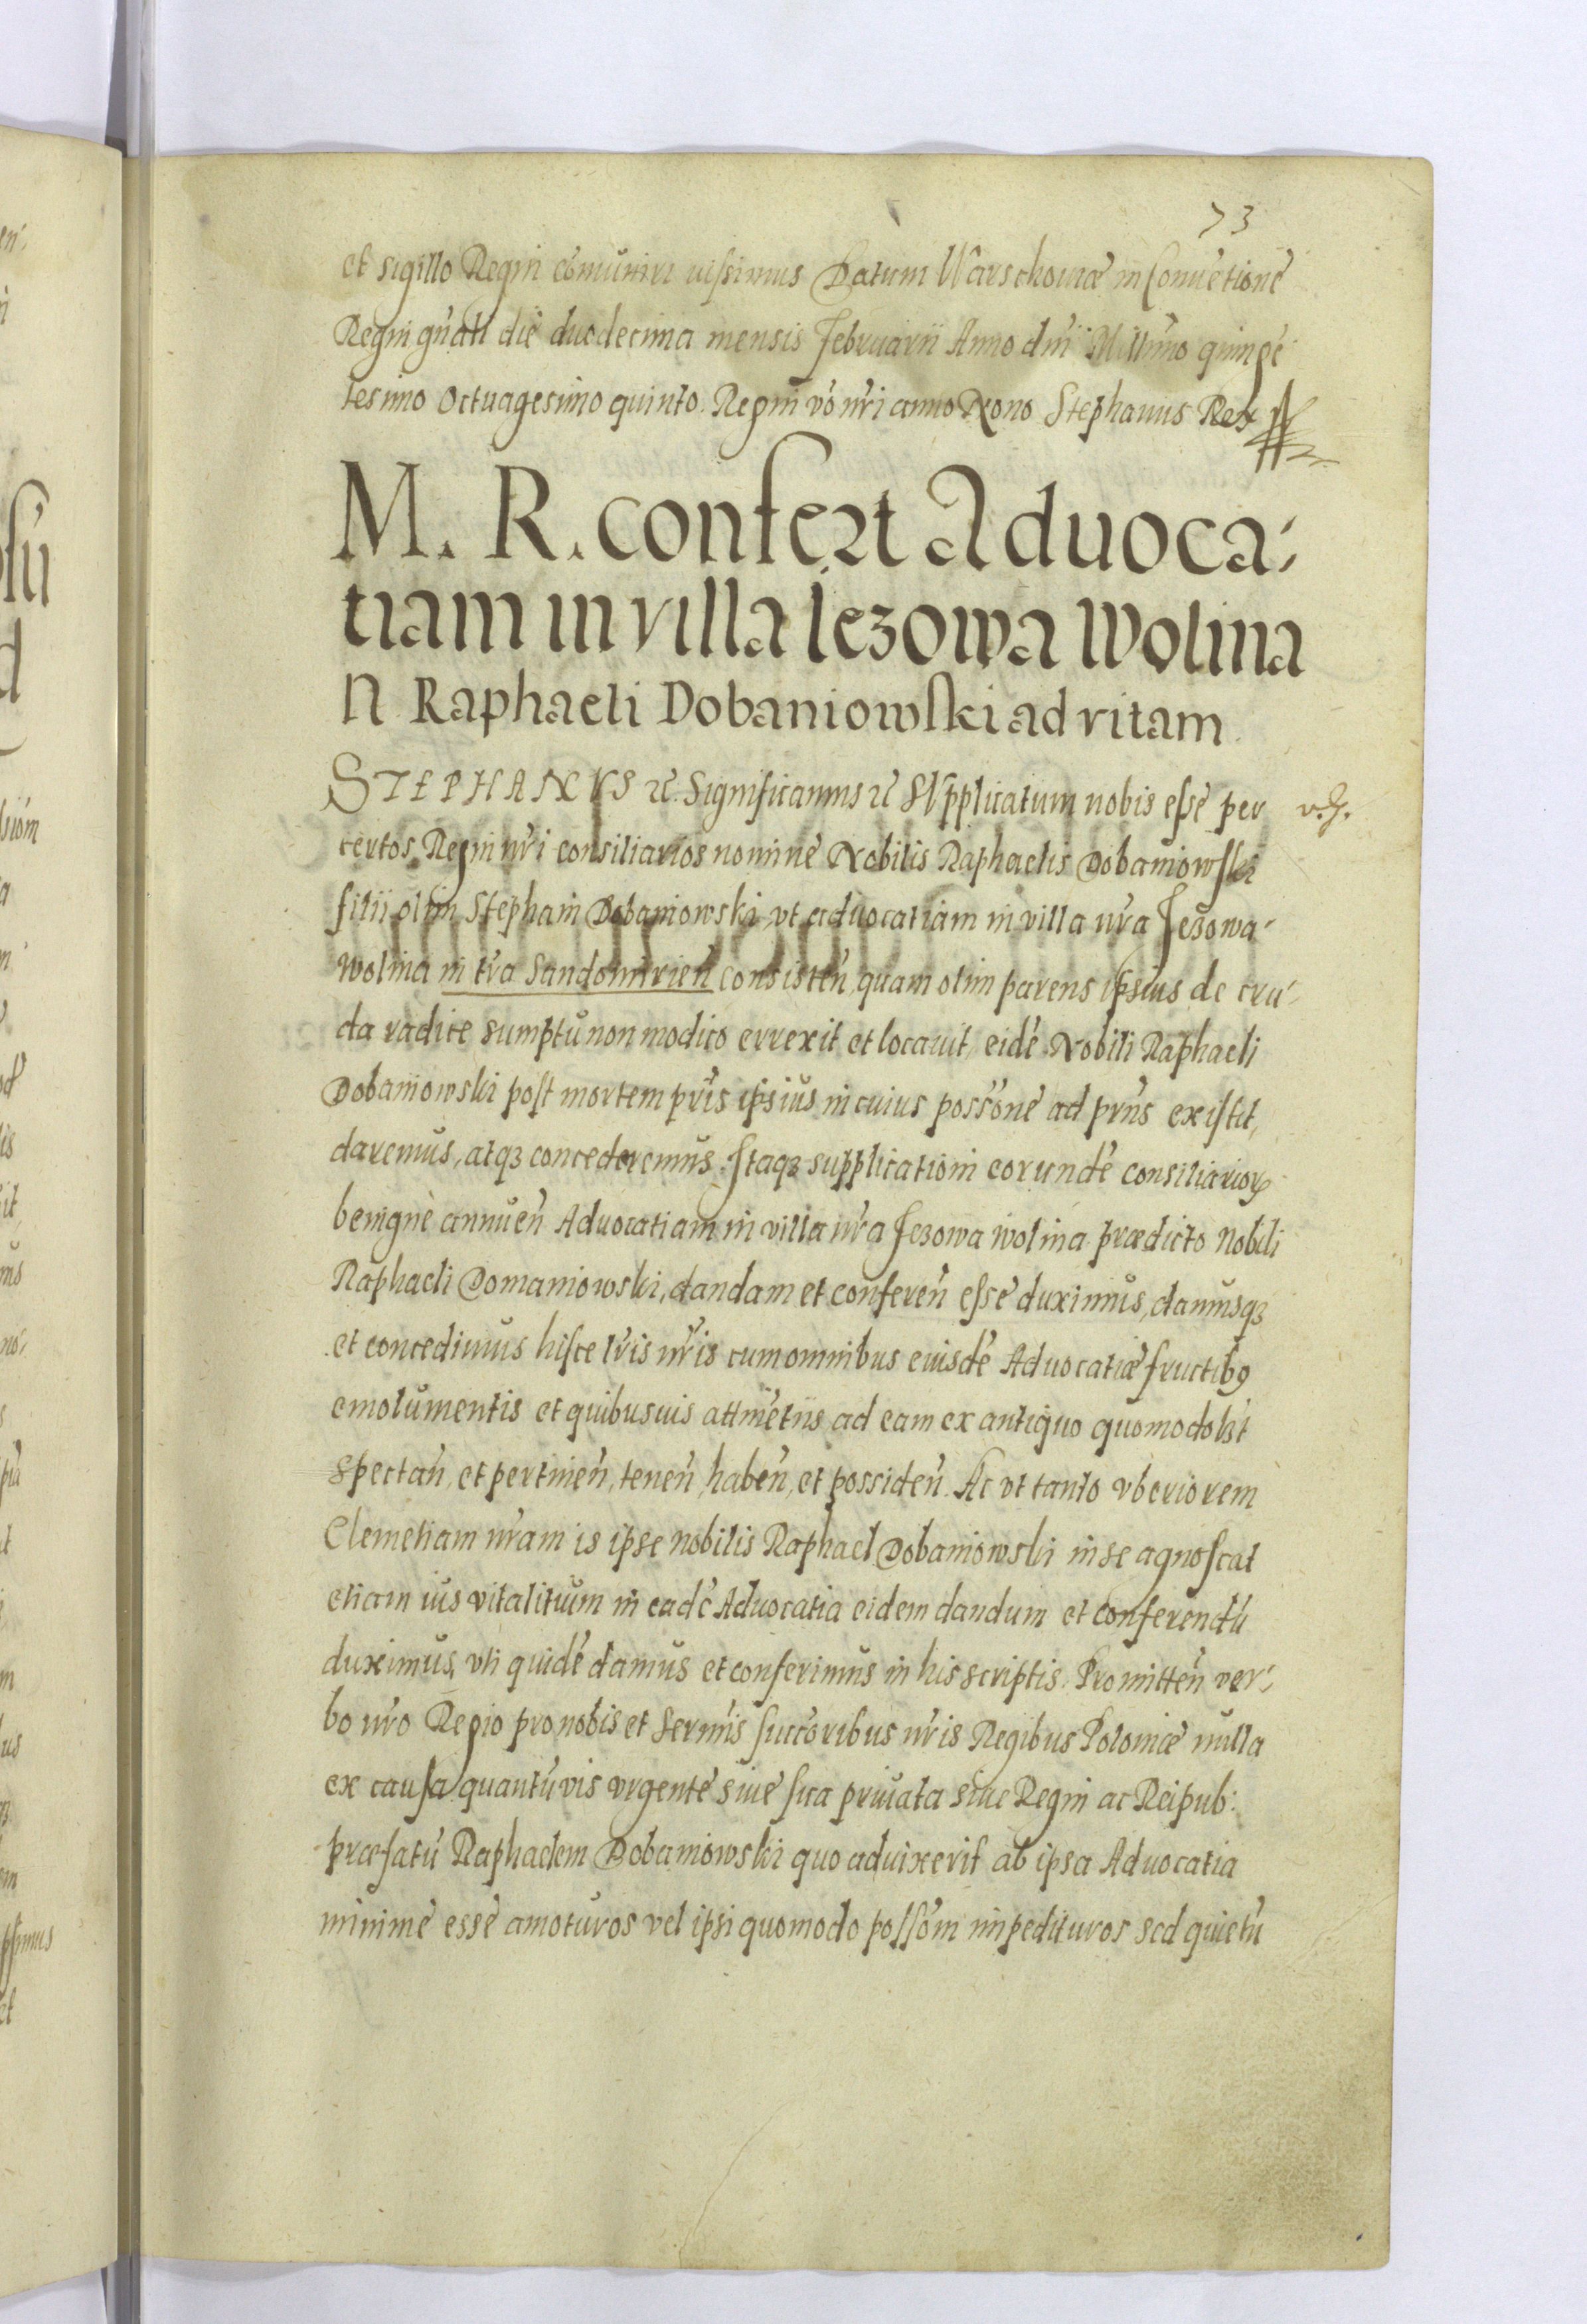 73
et sigillo Regni cõmuniri iussimus Datum Warschouiæ in Conuẽtione
Regni gñali die duodecima mensis Februarii Anno dñi Millimo quingẽ
tesimo Octuagesimo quinto. Regni vo nr̃i anno Nono Stephanus Rex
M. R. confert Aduoca-
tiam in villa Iezowa Wolina
N. Raphaeli Dobaniowski ad vitam
STEPHANVS etc. Significamus etc Supplicatum nobis esse per
v. J.
certos Regni nr̃i consiliarios nomine Nobilis Raphaelis Dobaniowski
filii olim Stephani Dobaniowski, vt aduocatiam in villa nr̃a Jezowa-
wolina in tr̃a Sandomirieñ consisteñ, quam olim parens ipsius de cru-
da radice sumptu non modico errexit et locauit, eidẽ Nobili Raphaeli
Dobaniowski post mortem pr̃is ipsius in cuius possõne ad prñs existit,
daremus, atqȝ concederemus. Itaqȝ supplicationi eorundẽ consiliarioꝝ
benigne annueñ Aduocatiam in villa nr̃a Jezowa wolina prædicto Nobili
Raphaeli Domaniowski, dandam et confereñ esse duximus, damusqȝ
et concedimus hisce lr̃is nr̃is cum omnibus eiusdẽ Aduocatiæ fructibꝰ
emolumentis et quibusuis attinẽtiis ad eam ex antiquo quomodolꝫt
spectañ, et pertineñ, teneñ, habeñ, et possideñ. Ac vt tanto vberiorem
Clemẽtiam nr̃am is ipse nobilis Raphael Dobaniowski in se agnoscat
etiam ius vitalitium in eadẽ Aduocatia eidem dandum et conferendũ
duximus, vti quidẽ damus et conferimus in his scriptis. Promitteñ ver-
bo nr̃o Regio pro nobis et Sermis succoribus nr̃is Regibus Poloniæ nulla
ex causa quantũvis vrgente siue sua priuata siue Regni ac Reipub:
præfatũ Raphaelem Dobaniowski quo aduixerit ab ipsa Aduocatia
minime esse amoturos vel ipsi quomodo possõni impedituros sed quietũ